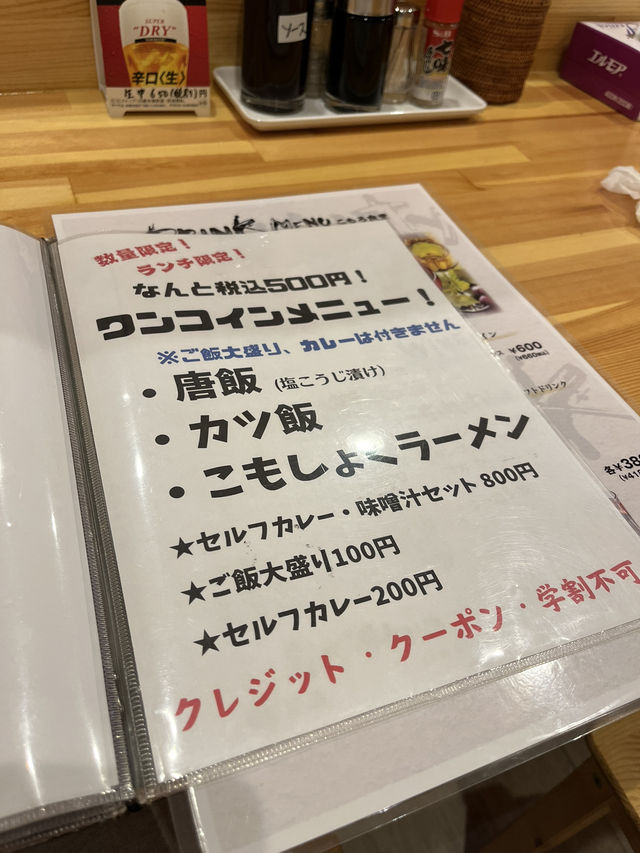 SUPER
"DRY"
辛口〈生〉
ソース
七味
エルモア
DRINK MENU こもる食堂
数量限定！
ランチ限定！
なんと税込500円！
ワンコインメニュー！
※ご飯大盛り、カレーは付きません
・唐飯 (塩こうじ漬け)
・カツ飯
・こもしょくラーメン
★セルフカレー・味噌汁セット 800円
★ご飯大盛り100円
★セルフカレー200円
クレジット・クーポン・学割不可
¥600
(¥660税込)
フトドリンク
各¥38